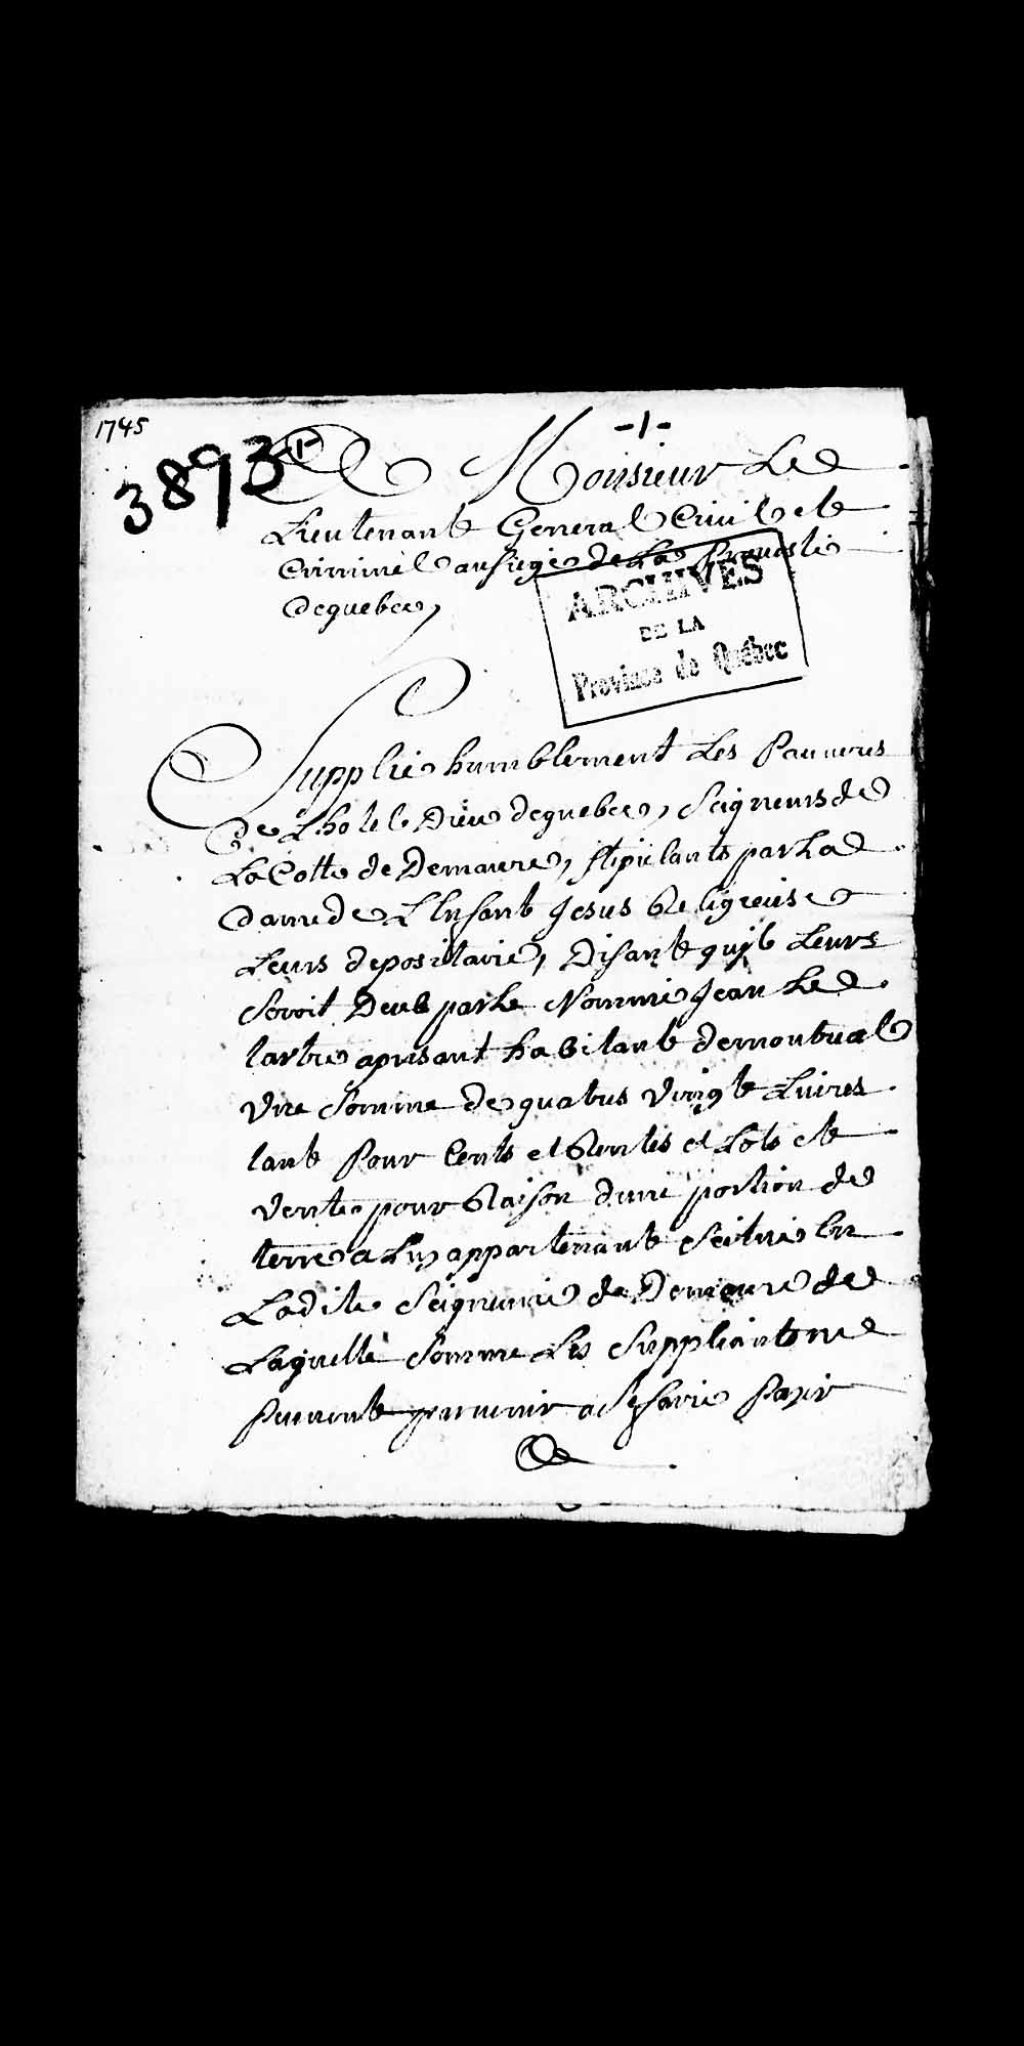 1745
-1-
3893
A Monsieur Le
Lieutenant General Civil et
Criminel au siege de La Prevosté
de quebec,
ARCHIVES
DE LA
Province de Québec
Supplie humblement Les Pauvres
De Lhotel Dieu de quebec, Seigneurs de
La Cotte de Demaure, stipulants par La
Dame de LEnfant Jesus Religieuse
Leurs depositaire, Disant quil Leurs
Seroit Deub par Le Nommé Jean Le
tartre apresant habitant de montreal
Une Somme de quatres Vingt Livres
tant Pour Cents et Rentes et Lots et
Vente pour Raison dune portion de
terre a Luy appartenant Scitué En
Ladite Seigneurie de Demaure de
Laquelle Somme Les Suppliant ne
Peuvent parvenir a Se faire Payer